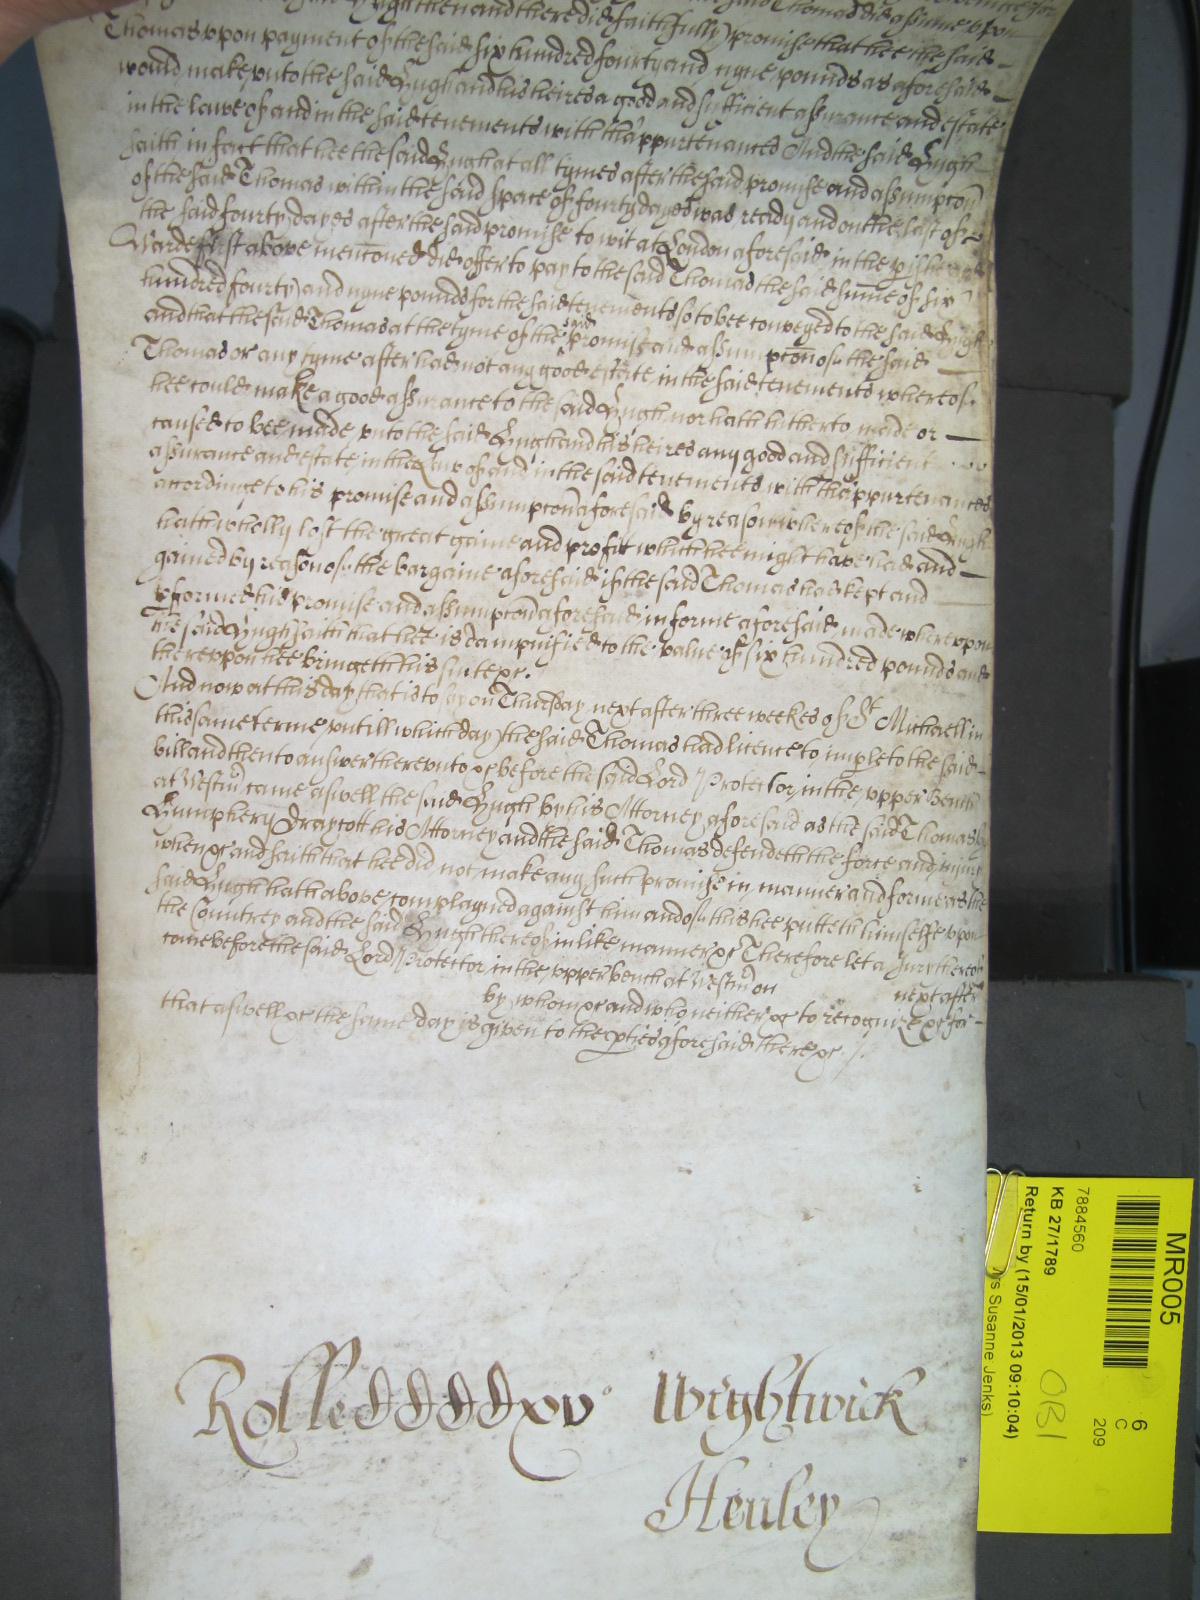 Hugh then and there did faithfully promise that hee the said
Thomas vpon payment of the said six hundred fourty and nyne pounds as aforesaid
would make vnto the said Hugh and his heires a good and sufficient assurance and estate
in the lawe of and in the said tenements with thappurtenances And the said Hugh
saith in fact that hee the said Hugh at all tymes after the said promise and assumpcon
of the said Thomas within the said space of fourty dayes was ready and on the last of
the said fourty dayes after the said promise to wit at London aforesaid in the pish and
Warde first above menconed did offer to pay to the said Thomas the said sume of six
hundred fourty and nyne pounds for the said tenements so to bee conveyed to the said Hugh
and that the said Thomas at the tyme of the said promise and assumpcon of the said
Thomas or any tyme after had not any good estate in the said tenements whereof
hee could make a good assurance to the said Hugh nor hath hitherto made or
caused to bee made vnto the said Hugh and his heires any good and sufficient
assurance and estate in the Law of and in the said tenements with thappurtenances
accordinge to his promise and assumpcon aforesaid by reason whereof the said Hugh
hath wholly lost the great gaine and profit which hee might have had and
gained by reason of the bargaine aforesaid if the said Thomas had kept and
pformed his promise and assumpcon aforesaid in forme aforesaid made wherevpon
the said Hugh saith that hee is dampnified to the value of six hundred pounds and
therevpon hee bringeth his suite &c.
And now at this day that is to say on Thursday next after three weekes of St Michaell in
this same terme vntill which day the said Thomas had licence to imple to the said
bill and then to answer therevnto &c before the said Lord Protector in the vpper bench
at Westm came aswell the said Hugh by his Attorney aforesaid as the said Thomas by
Humphery Draycott his Attorney and the said Thomas defendeth the force and iniury
when &c and saith that hee did not make any such promise in manner and forme as the
said Hugh hath above complayned against him and of this hee putteth himselfe vpon
the Countrey and the said Hugh thereof in like manner &c Therefore let a Jury thereof
come before the said Lord Protector in the vpper bench at Westm on next after
by whom &c and who neither &c to recognize &c for
that aswell &c the same day is given to the pties aforesaid there &c.
Rolle DDDDxv Wightwick
Henley
MR005
6
C
209
7884560
KB 27/1789
OB1
Return by (15/01/2013 09:10:04)
Susanne Jenks)